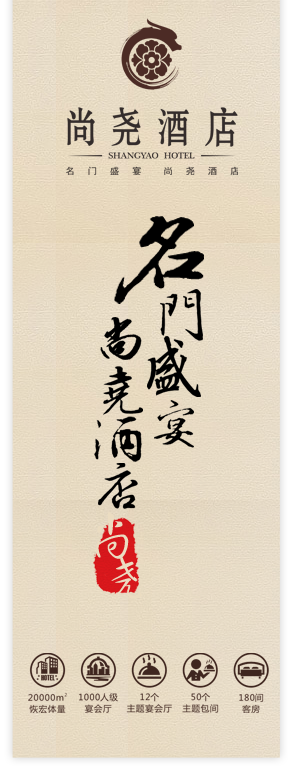 尚尧酒店
SHANGYAO HOTEL
名门盛宴 尚尧酒店
名門盛宴
尚堯酒店
尚尧
HOTEL
20000m²
恢宏体量
1000人级
宴会厅
12个
主题宴会厅
50个
主题包间
180间
客房